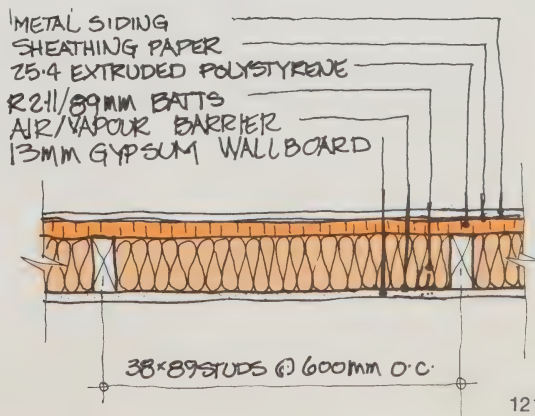 METAL SIDING
SHEATHING PAPER
25.4 EXTRUDED POLYSTYRENE
R2.11/89mm BATTS
AIR/VAPOUR BARRIER
13mm GYPSUM WALLBOARD
38×89 STUDS @ 600mm O.C.
12